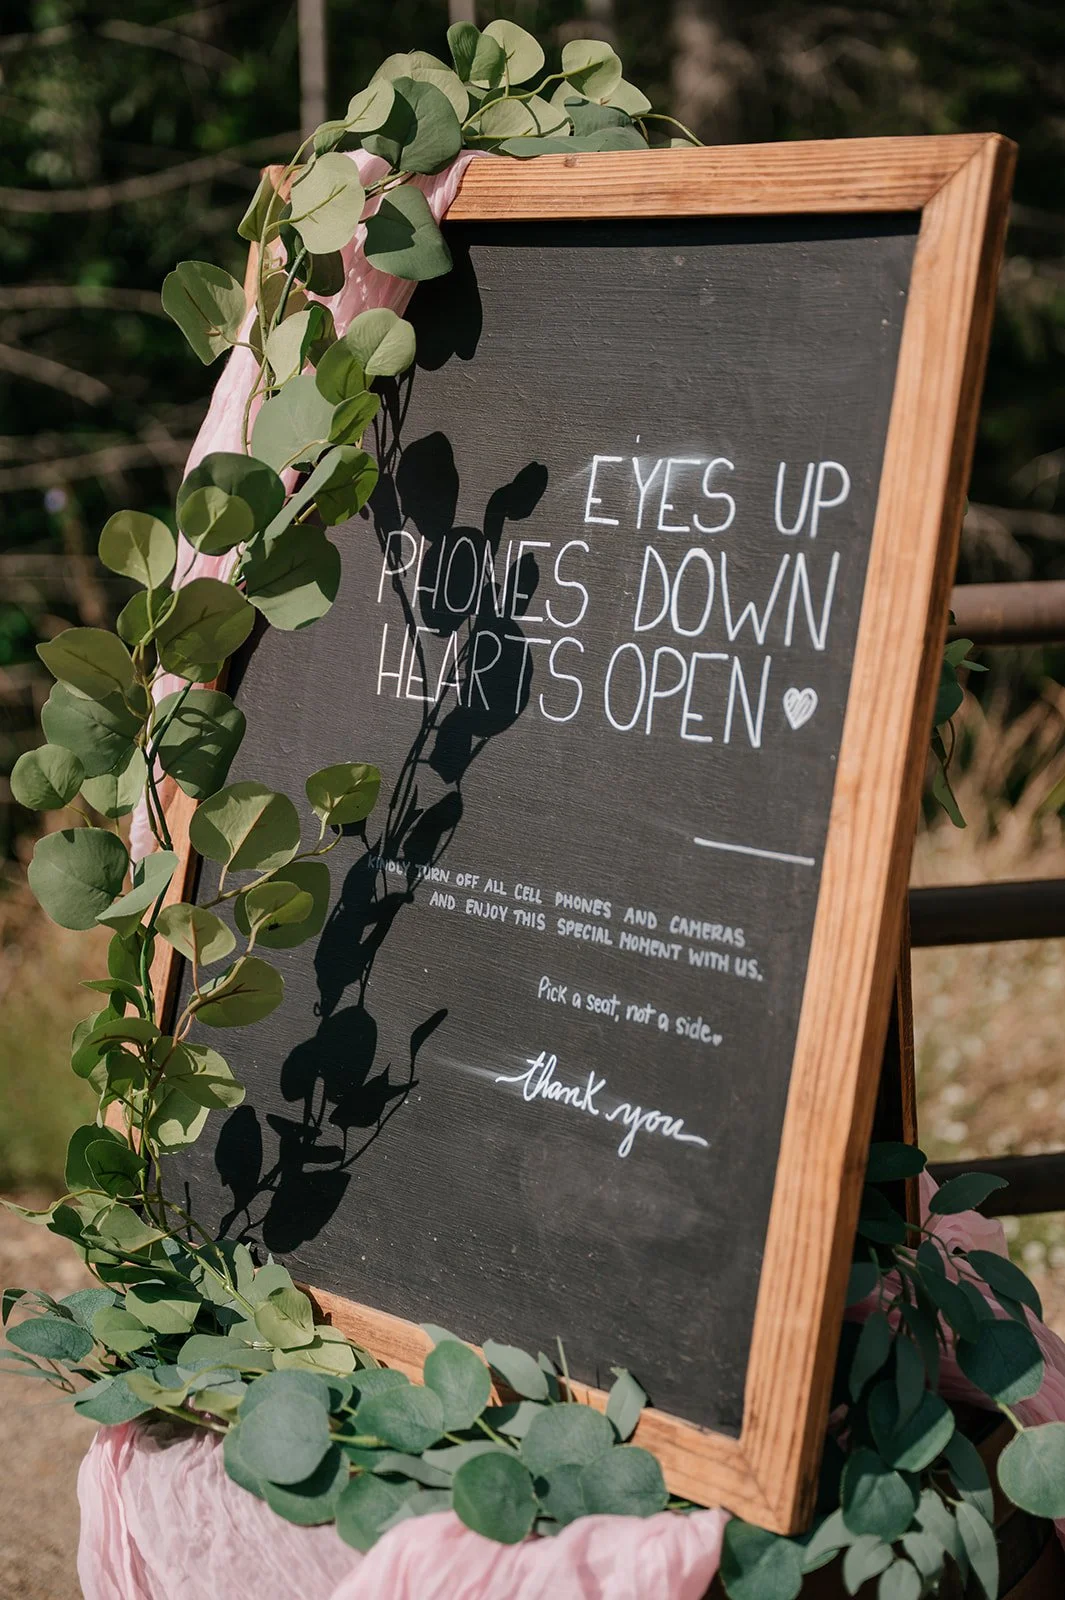 EYES UP
PHONES DOWN
HEARTS OPEN
KINDLY TURN OFF ALL CELL PHONES AND CAMERAS
AND ENJOY THIS SPECIAL MOMENT WITH US.
Pick a seat, not a side.
thank you